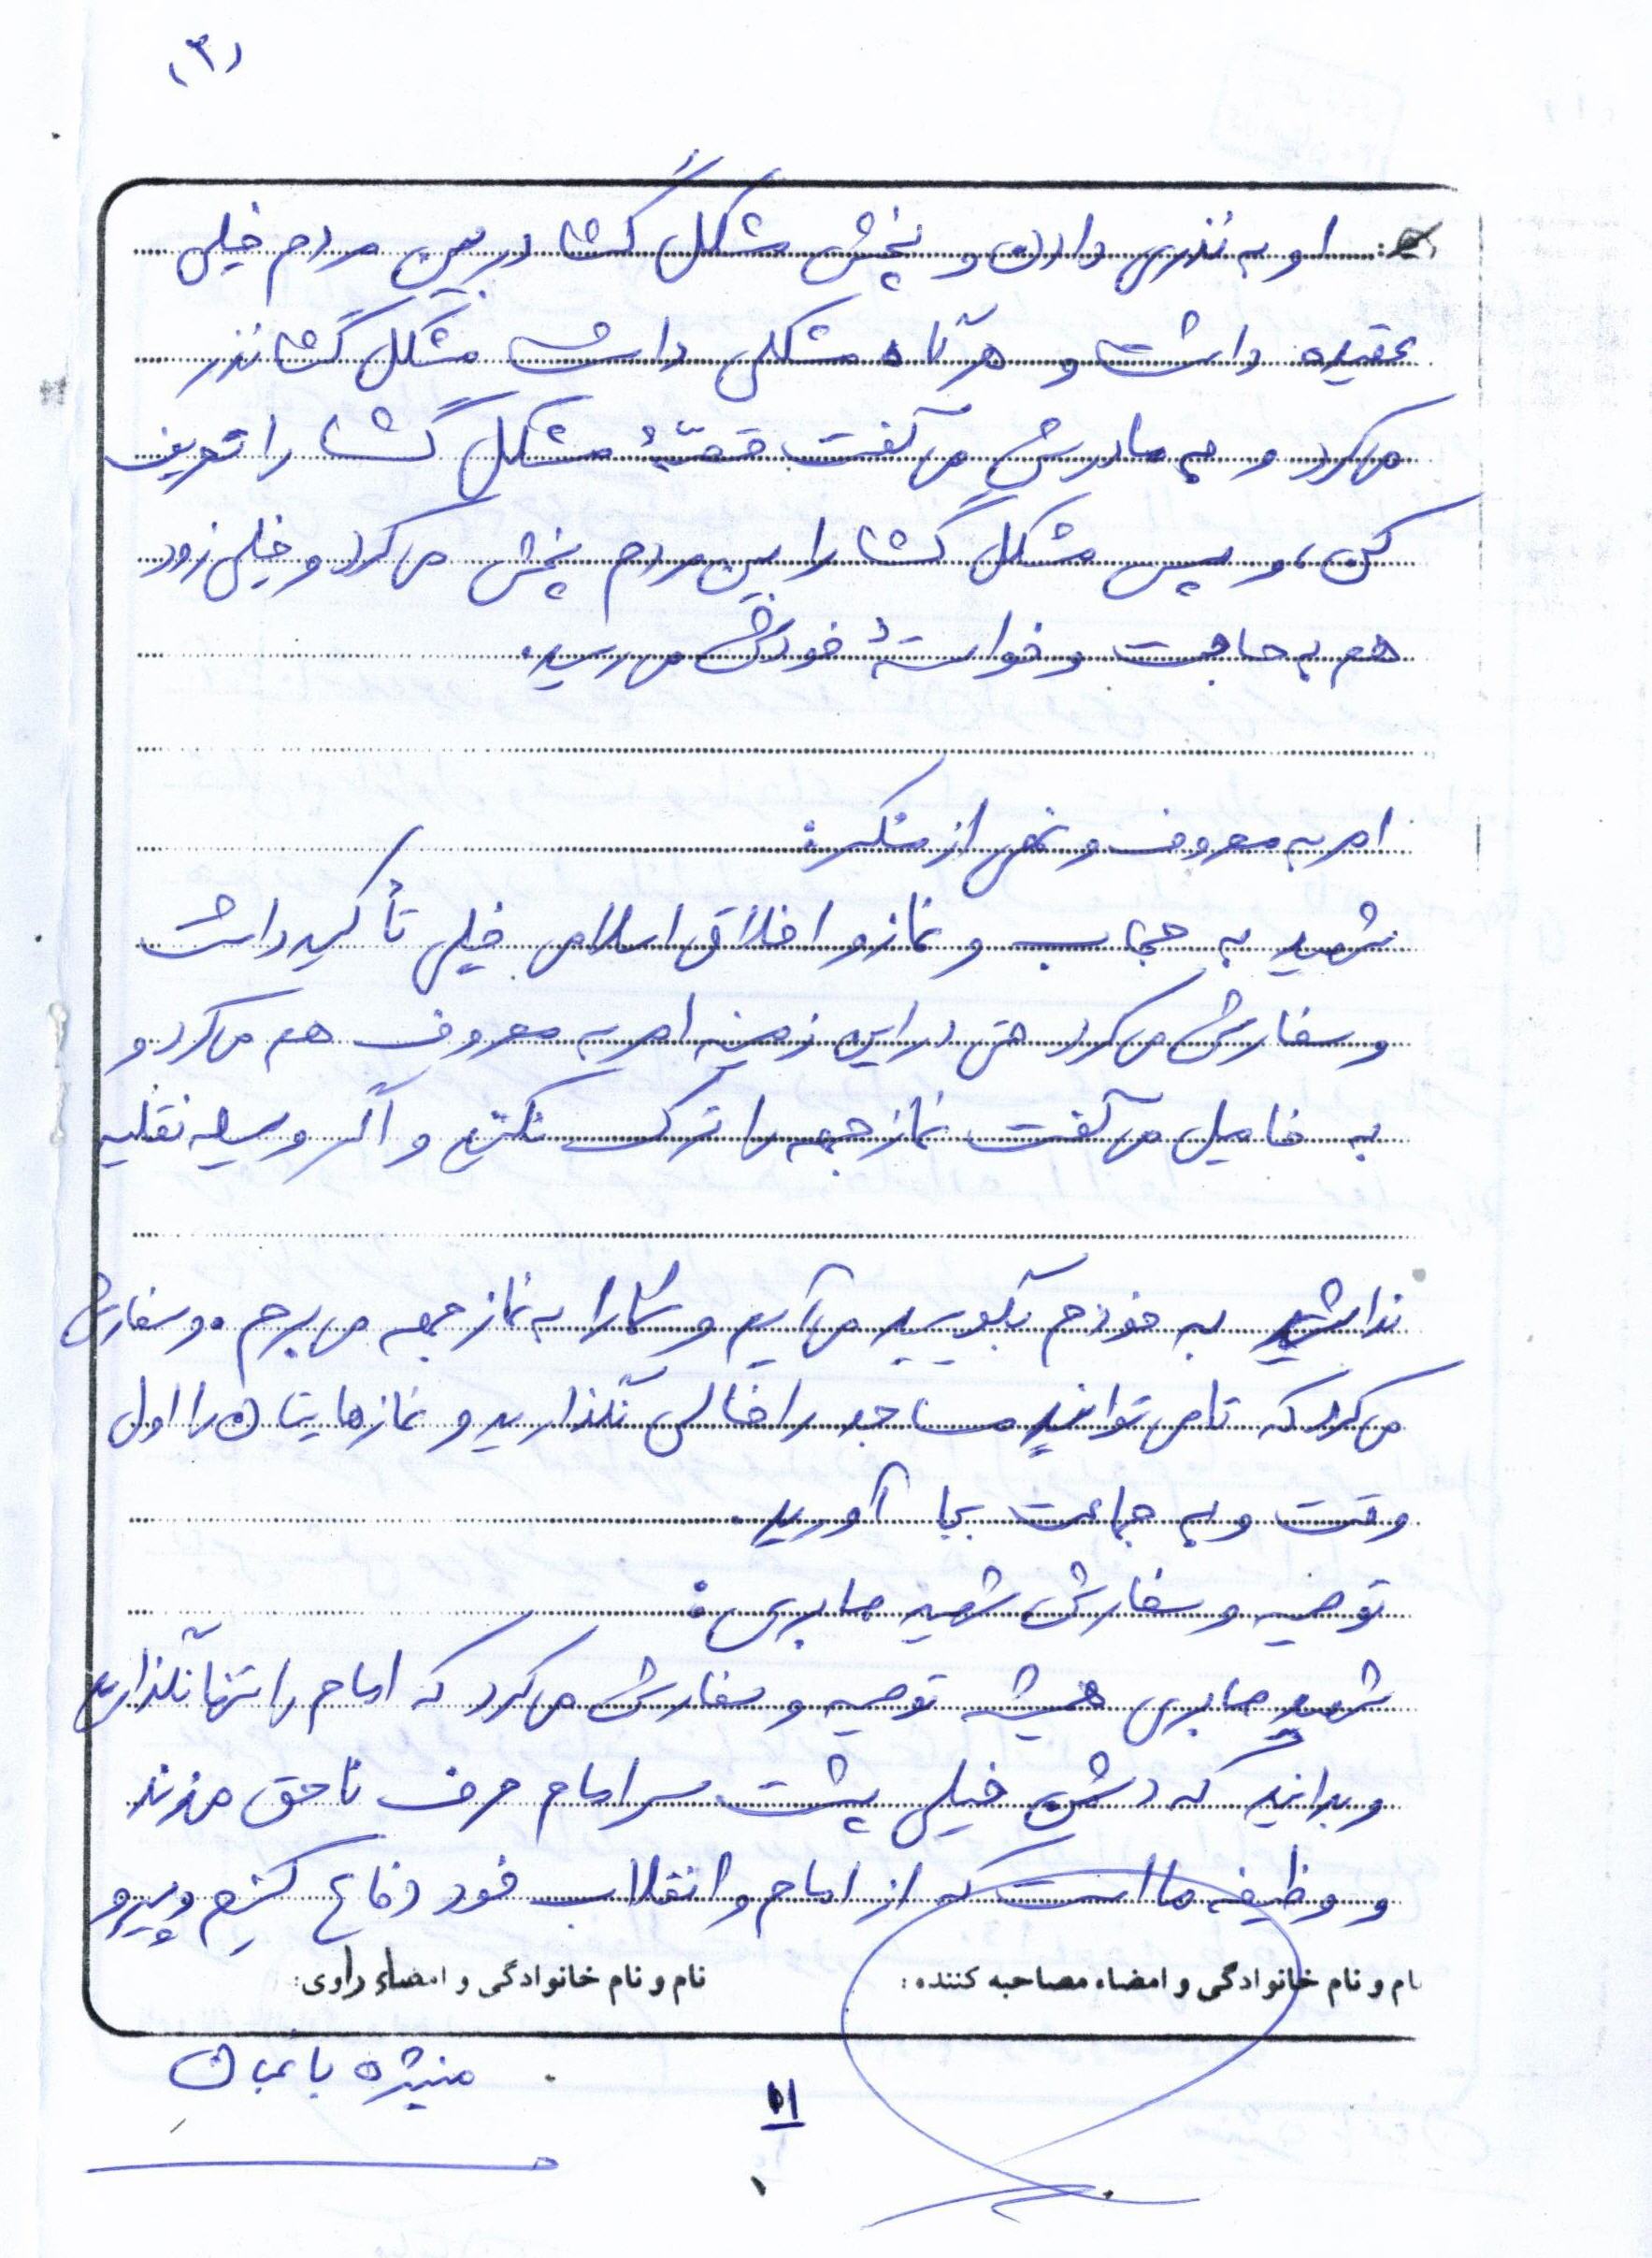 (۳)
او به نذری دادن و پخش مشکل گشا در بین مردم خیلی
عقیده داشت و هرگاه مشکلی داشت مشکل گشا نذر
می‌کرد و به مادرش می‌گفت قصّهٔ مشکل گشا را تعریف
کن، و سپس مشکل گشا را بین مردم پخش می‌کرد و خیلی زود
هم به حاجت و خواستهٔ خودش می‌رسید.
امر به معروف و نهی از منکر:
شهید به حجاب و نماز و اخلاق اسلامی خیلی تأکید داشت
و سفارش می‌کرد حتی در این زمینه امر به معروف هم می‌کرد و
به فامیل می‌گفت نماز جمعه را ترک نکنید و اگر وسیله نقلیه
نداشتید به خودم بگویید می‌آیم و شما را به نماز جمعه می‌برم. و سفارش
می‌کرد که تا می‌توانید مساجد را خالی نگذارید و نمازهایتان را اول
وقت و به جماعت بجا آورید.
توصیه و سفارش شهید صابری:
شهید صابری همیشه توصیه و سفارش می‌کرد که امام را تنها نگذارید
و بدانید که دشمن خیلی پشت سر امام حرف ناحق میزند
و وظیفه ما است که از امام و انقلاب خود دفاع کنیم و پیرو
نام و نام خانوادگی و امضاء مصاحبه کننده: نام و نام خانوادگی و امضاء راوی:
منیژه باغبان
۱۱